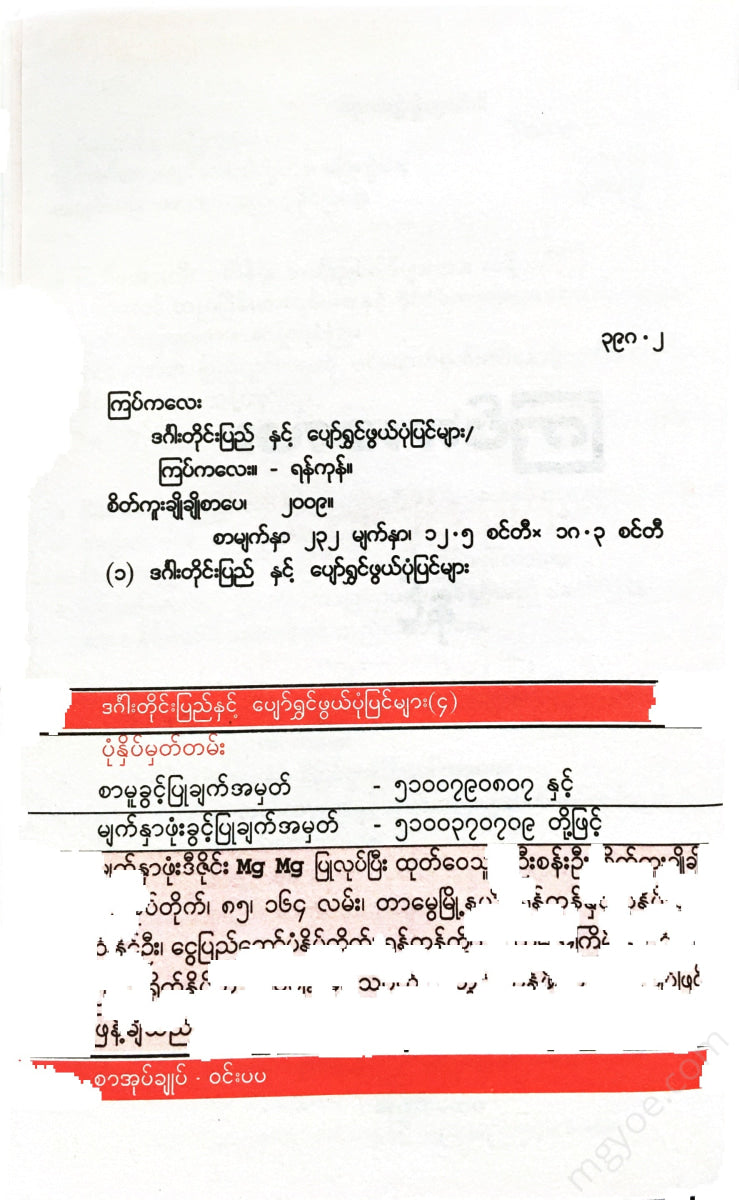 ၃၉၈.၂
ကြပ်ကလေး
ဒင်္ဂါးတိုင်းပြည် နှင့် ပျော်ရွှင်ဖွယ်ပုံပြင်များ/
ကြပ်ကလေး။ - ရန်ကုန်။
စိတ်ကူးချိုချိုစာပေ၊ ၂၀၀၉။
စာမျက်နှာ ၂၃၂ မျက်နှာ၊ ၁၂.၅ စင်တီ× ၁၈.၃ စင်တီ
(၁) ဒင်္ဂါးတိုင်းပြည် နှင့် ပျော်ရွှင်ဖွယ်ပုံပြင်များ
ဒင်္ဂါးတိုင်းပြည်နှင့် ပျော်ရွှင်ဖွယ်ပုံပြင်များ(၄)
ပုံနှိပ်မှတ်တမ်း
စာမူခွင့်ပြုချက်အမှတ် - ၅၁၀၀၇၉၀၈၀၇ နှင့်
မျက်နှာဖုံးခွင့်ပြုချက်အမှတ် - ၅၁၀၀၃၇၀၇၀၉ တို့ဖြင့်
မျက်နှာဖုံးဒီဇိုင်း Mg Mg ပြုလုပ်ပြီး ထုတ်ဝေသူ ဦးစန်းဦး
တိုက်၊ ၈၅၊ ၁၆၄ လမ်း၊ တာမွေမြို့နယ်
ဦး၊ ငွေပြည်တော်ပုံနှိပ်တိုက်၊
ဖြန့်ချိသည်
စာအုပ်ချုပ် - ဝင်းပပ
mgyoe.com